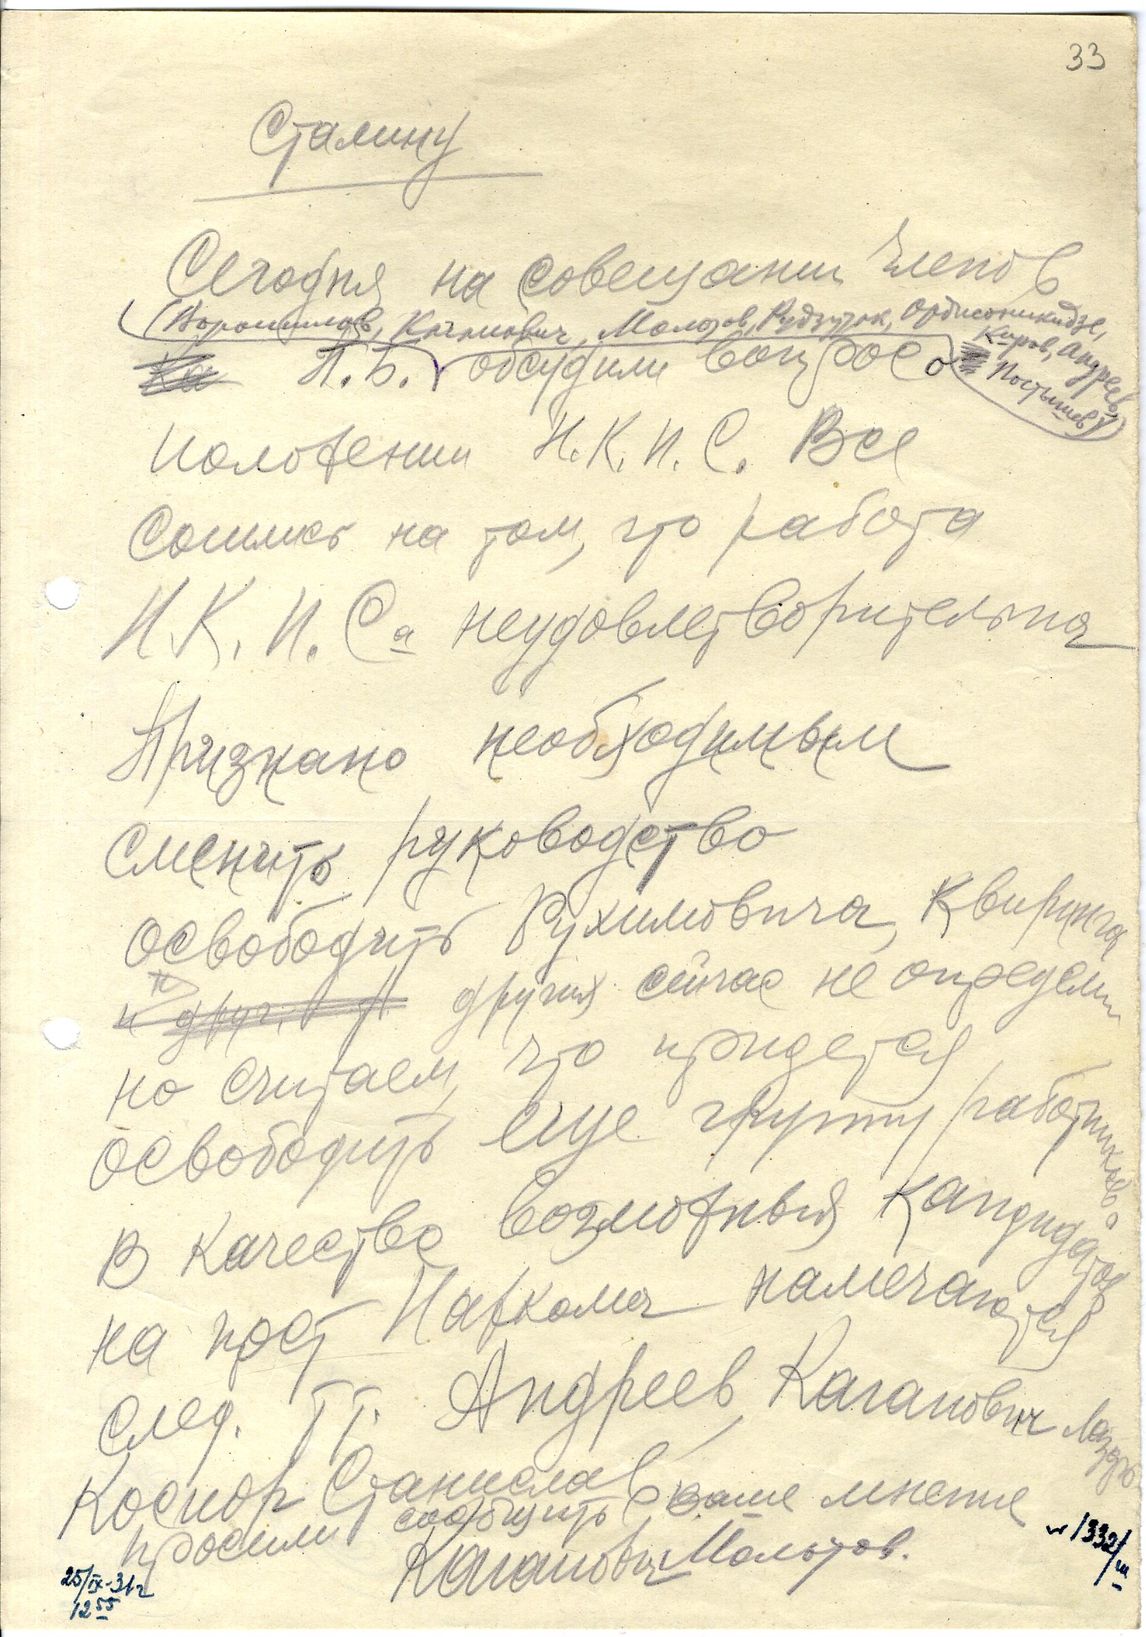 33
Сталину
Сегодня на совещании членов
(Ворошилов, Каганович, Молотов, Рудзутак, Орджоникидзе,
Киров, Андреев,
Постышев)
П.Б. обсудили вопрос о
положении Н.К.П.С. Все
сошлись на том, что работа
Н.К.П.Са неудовлетворительна
Признано необходимым
сменить руководство
освободить Рухимовича, Квиринга
и друг. других сейчас не определили
но считаем, что придется
освободить еще группу работников.
В качестве возможных кандидатов
на пост Наркома намечаются
след. тт. Андреев, Каганович Лазарь
Косиор Станислав
просим сообщить ваше мнение
Каганович Молотов.
25/IX-31 г
12 55
№ 1332/ш